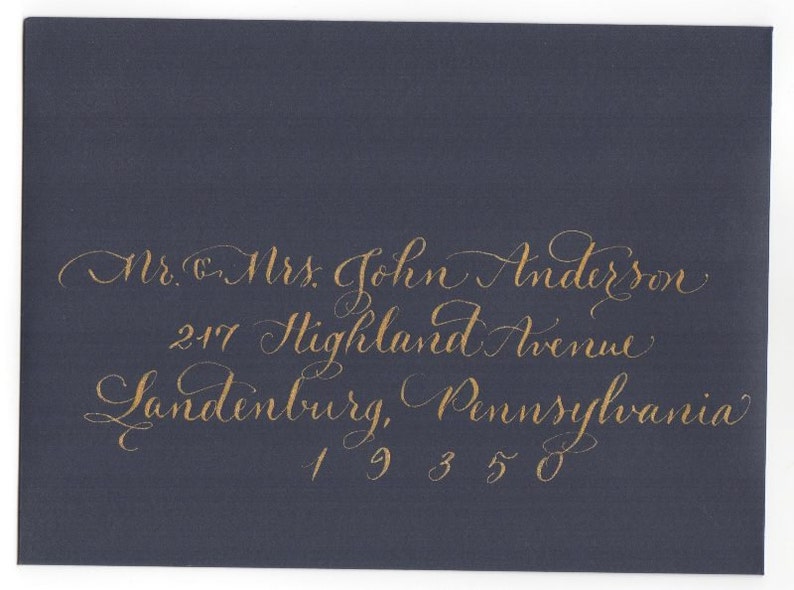 Mr. & Mrs. John Anderson
217 Highland Avenue
Landenburg, Pennsylvania
19350